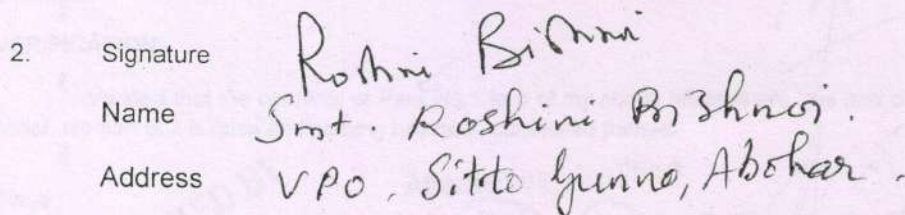 2. Signature Roshni Bishnoi
Name Smt. Roshini Bishnoi.
Address VPO. Sitto Gunno, Abohar.